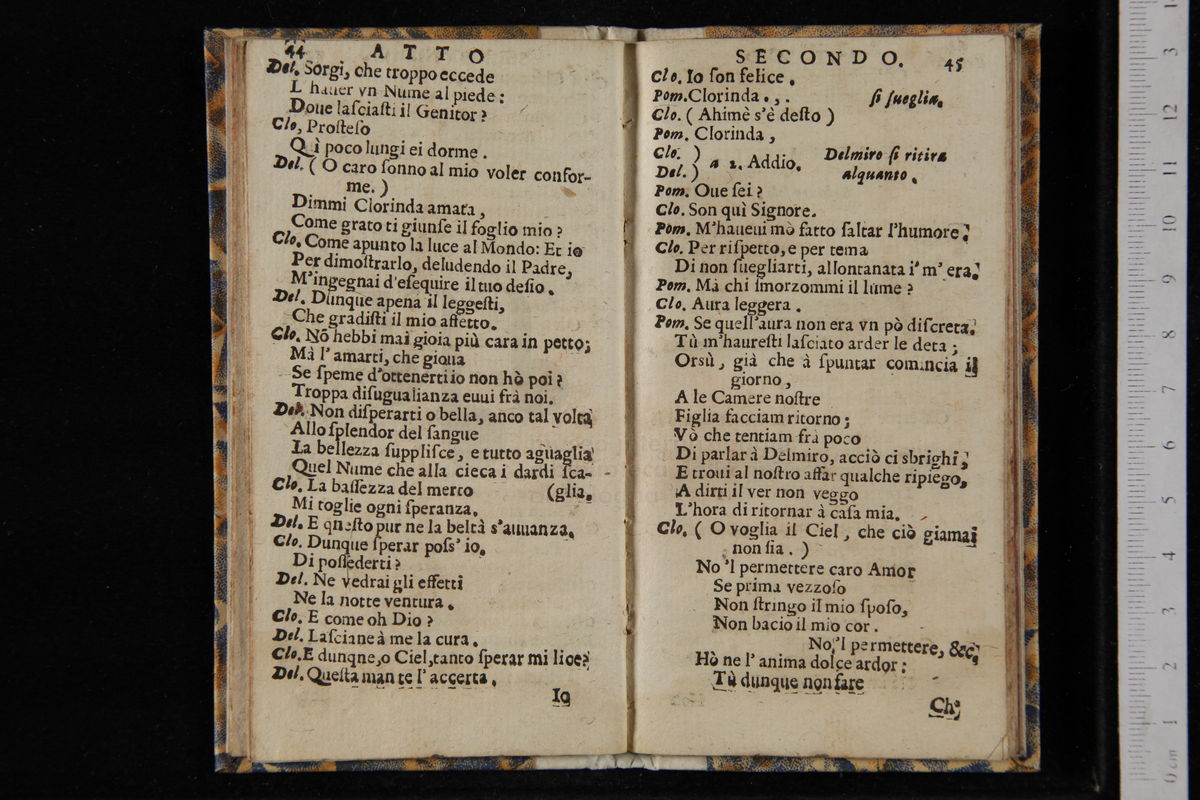 44 ATTO
Del. Sorgi, che troppo eccede
L'hauer vn Nume al piede:
Doue laſciaſti il Genitor?
Clo, Proſteſo
Quì poco lungi ei dorme.
Del. ( O caro ſonno al mio voler confor-
me. )
Dimmi Clorinda amata,
Come grato ti giunſe il foglio mio?
Clo. Come apunto la luce al Mondo: Et io
Per dimoſtrarlo, deludendo il Padre,
M'ingegnai d'eſequire il tuo deſio.
Del. Dunque apena il leggeſti,
Che gradiſti il mio affetto.
Clo. Nō hebbi mai gioia più cara in petto;
Mà l'amarti, che gioua
Se ſpeme d'ottenerti io non hò poi?
Troppa diſugualianza euui frà noi.
Del. Non diſperarti o bella, anco tal volta
Allo ſplendor del ſangue
La bellezza ſuppliſce, e tutto aguaglia
Quel Nume che alla cieca i dardi ſca-
Clo. La baſſezza del merto (glia.
Mi toglie ogni ſperanza.
Del. E queſto pur ne la beltà s'auuanza.
Clo. Dunque ſperar poſs' io.
Di poſſederti?
Del. Ne vedrai gli effetti
Ne la notte ventura.
Clo. E come oh Dio?
Del. Laſciane à me la cura.
Clo. E dunqne, o Ciel, tanto ſperar mi lice?
Del. Queſta man te l'accerta.
Io
SECONDO. 45
Clo. Io ſon felice.
Pom. Clorinda . , . ſi ſueglia.
Clo. ( Ahimè s'è deſto )
Pom. Clorinda,
Clo. )
a 2. Addio. Delmiro ſi ritira
Del. ) alquanto.
Pom. Oue ſei?
Clo. Son quì Signore.
Pom. M'haueui mò fatto ſaltar l'humore.
Clo. Per riſpetto, e per tema
Di non ſuegliarti, allontanata i' m' era.
Pom. Mà chi ſmorzommi il lume?
Clo. Aura leggera.
Pom. Se quell'aura non era vn pò diſcreta.
Tù m'haureſti laſciato arder le deta;
Orsù, già che à ſpuntar comincia il
giorno,
A le Camere noſtre
Figlia facciam ritorno;
Vò che tentiam frà poco
Di parlar à Delmiro, acciò ci sbrighi,
E troui al noſtro affar qualche ripiego,
A dirti il ver non veggo
L'hora di ritornar à caſa mia.
Clo. ( O voglia il Ciel, che ciò giamai
non ſia. )
No 'l permettere caro Amor
Se prima vezzoſo
Non ſtringo il mio ſpoſo,
Non bacio il mio cor.
No, 'l permettere, &c.
Hò ne l' anima dolce ardor:
Tù dunque non fare
0 cm 1 2 3 4 5 6 7 8 9 10 11 12 13 14